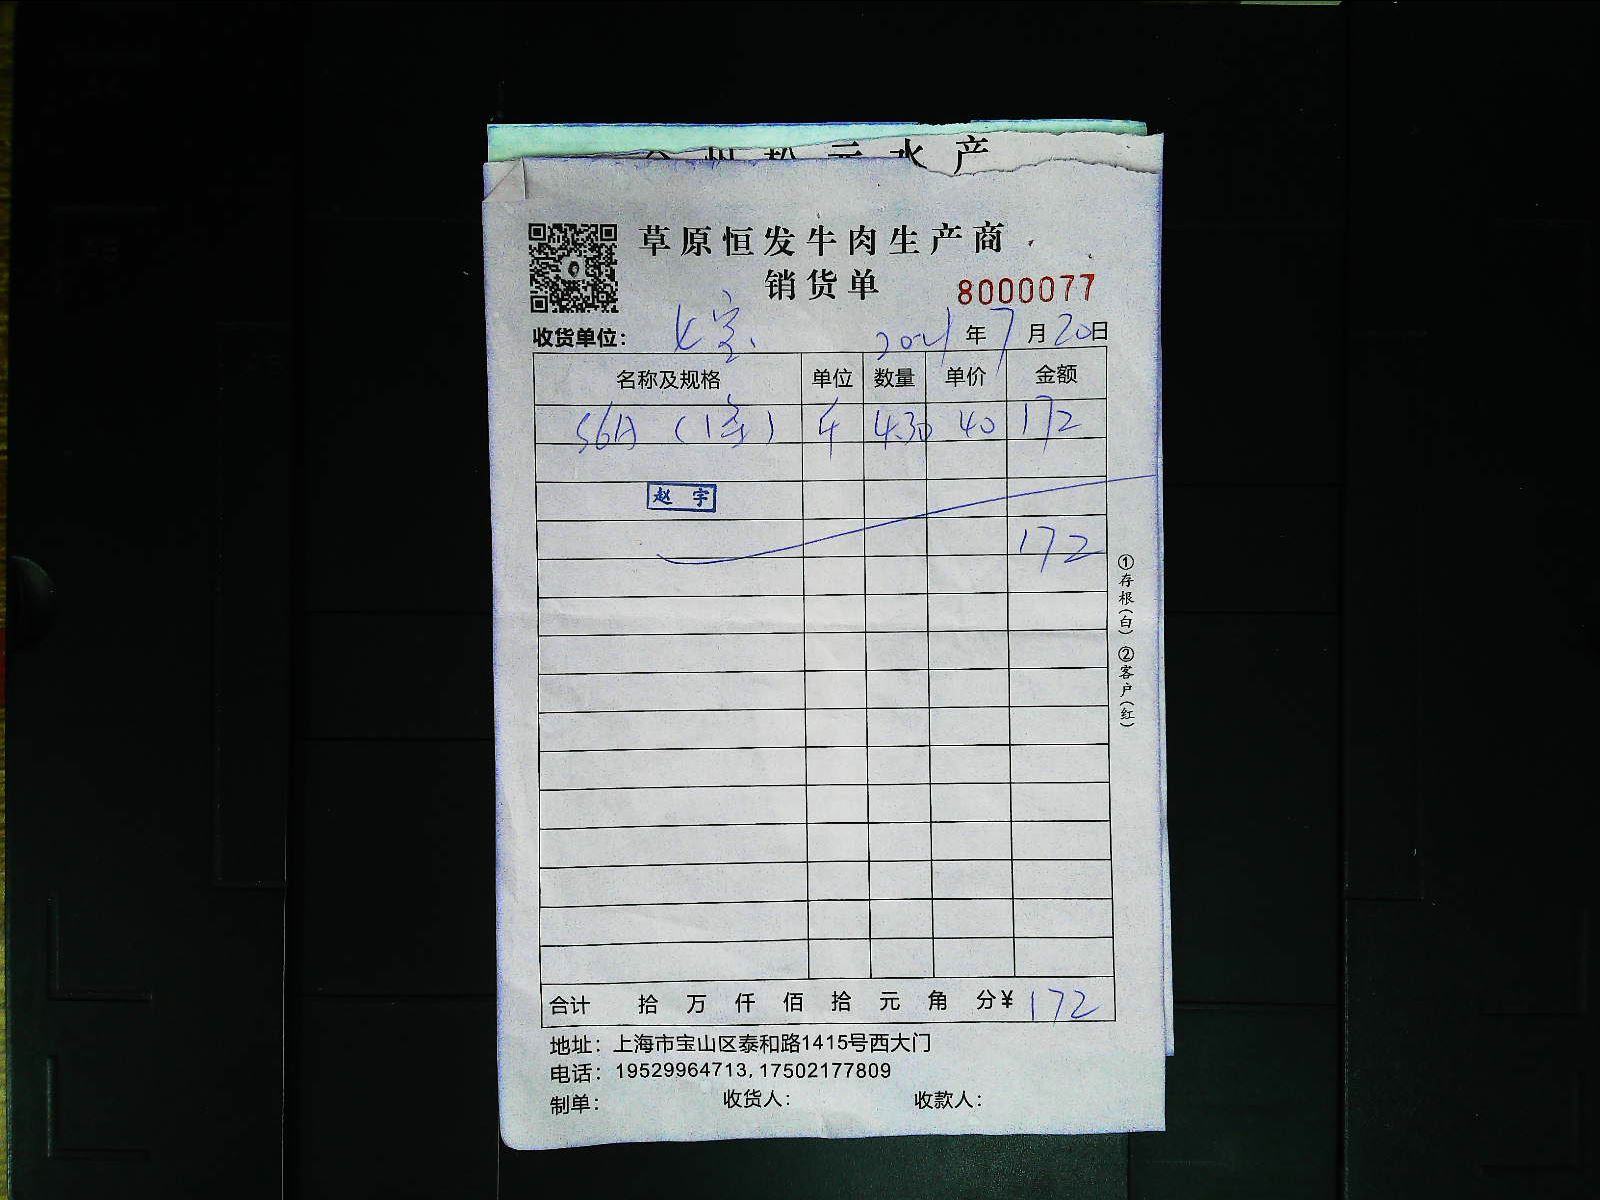 水产
草原恒发牛肉生产商
销货单
8000077
收货单位： 2021年7月20日
名称及规格 单位 数量 单价 金额
S6A (1条) 斤 4.30 40 172
赵宇
172
①存根(白) ②客户(红)
合计 拾 万 仟 佰 拾 元 角 分¥ 172
地址：上海市宝山区泰和路1415号西大门
电话：19529964713, 17502177809
制单： 收货人： 收款人：